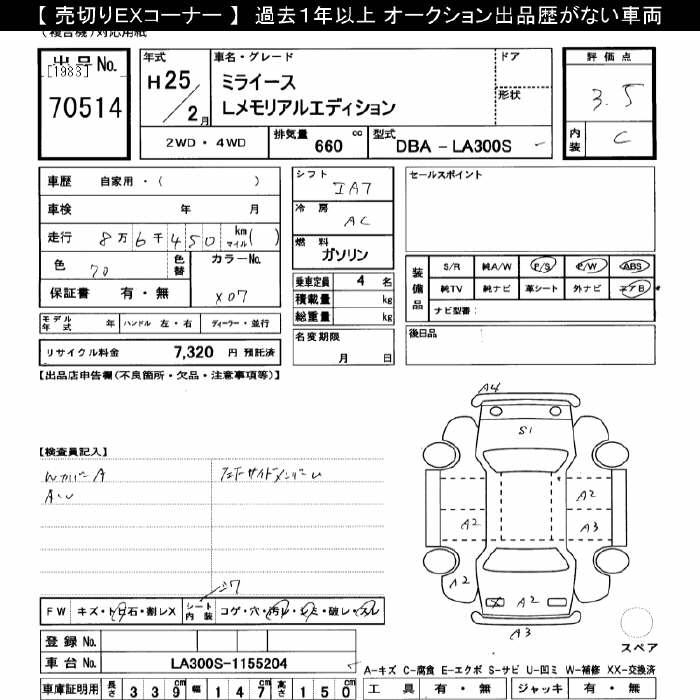 【 売切りEXコーナー 】 過去１年以上 オークション出品歴がない車両
(複合機)対応用紙
出品No.
[1983]
70514
年式
H25/2月
車名・グレード
ミライース
Lメモリアルエディション
ドア
形状
評価点
3.5
内装 C
2WD・4WD
排気量 660 cc
型式 DBA - LA300S
車歴 自家用・( )
車検 年 月
走行 8万6千450 km マイル ( )
色 70
色替
カラーNo.
X07
保証書 有・無
モデル年式 年 ハンドル 左・右 ディーラー・並行
リサイクル料金 7,320 円 預託済
シフト
IAT
冷房
AC
燃料
ガソリン
乗車定員 4 名
積載量 kg
総重量 kg
名変期限
月 日
セールスポイント
装備品
S/R 純A/W P/S P/W ABS
純TV 純ナビ 革シート 外ナビ エアB
ナビ型番:
後日品
【出品店申告欄(不良箇所・欠品・注意事項等)】
【検査員記入】
Wカバー A
A・U
フロントサイドメンバーU
A4
S1
A2
A3
A2
A2
A2
A3
スペア
FW キズ・トビ石・割レX
シート内装 コゲ・穴・汚レ・シミ・破レ・スレ
登録No.
車台No. LA300S-1155204
車庫証明用 長さ 339 cm 幅 147 cm 高さ 150 cm
A-キズ C-腐食 E-エクボ S-サビ U-凹ミ W-補修 XX-交換済
工具 有・無 ジャッキ 有・無